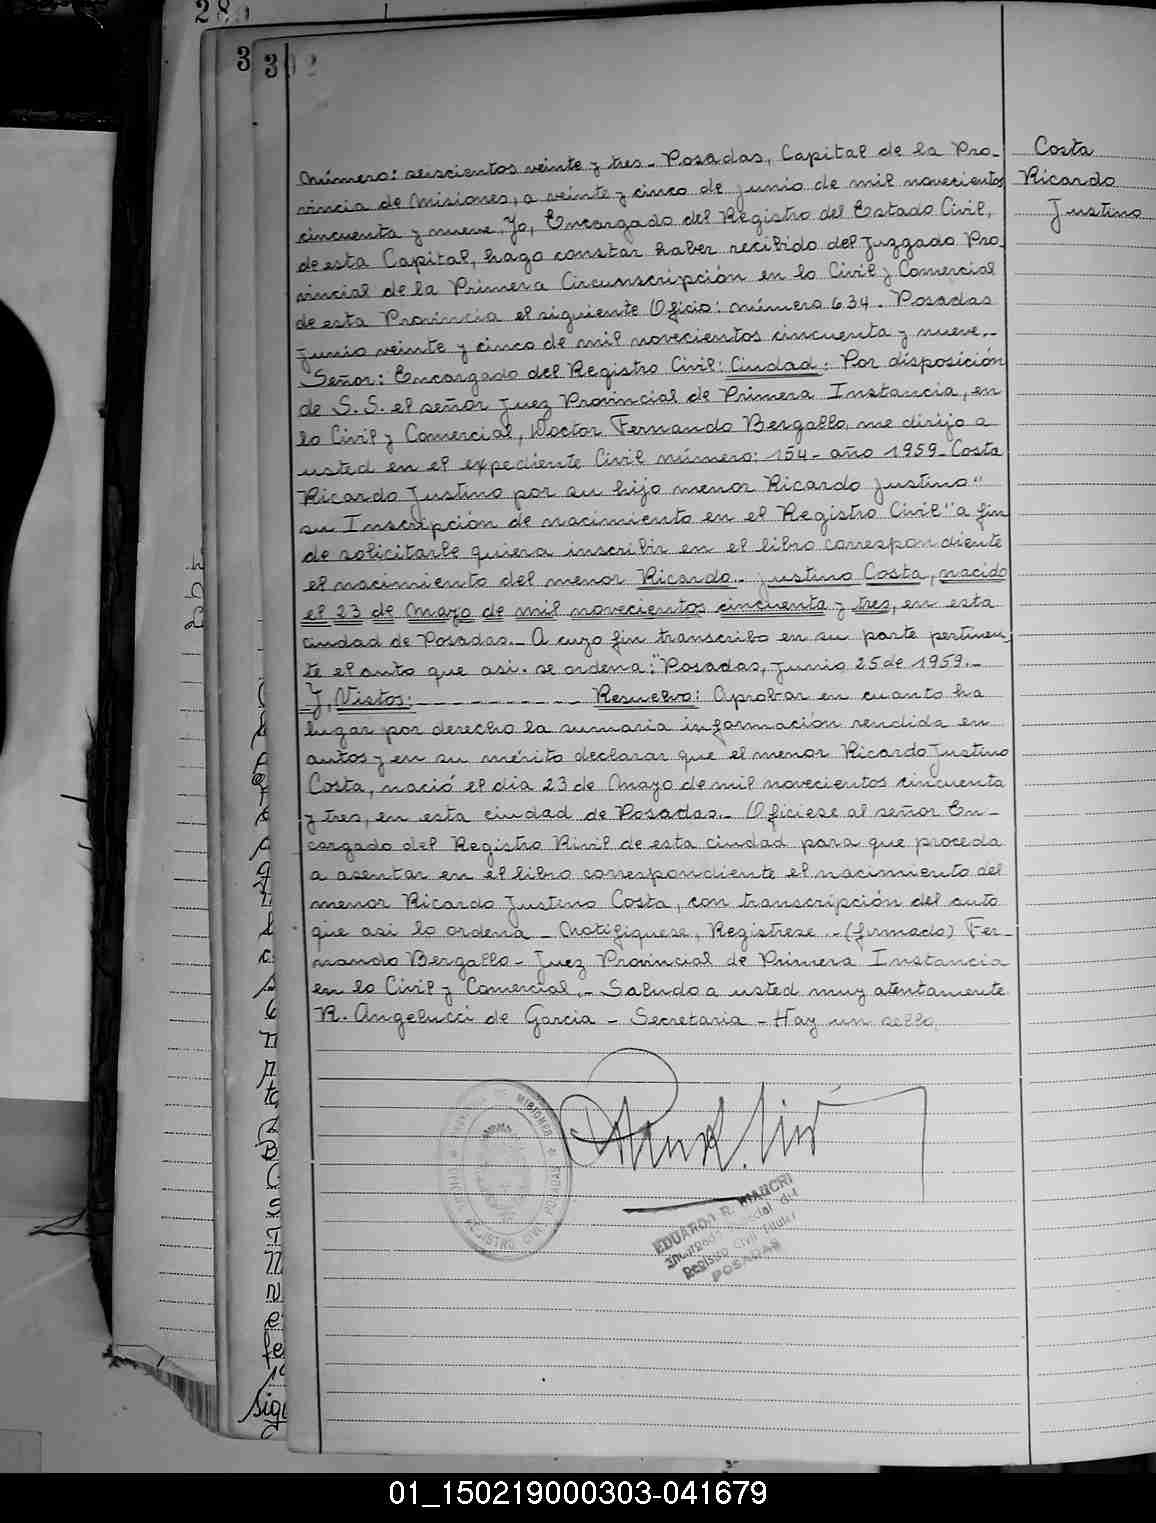 302
Número: seiscientos veinte y tres - Posadas, Capital de la Pro-
vincia de Misiones, a veinte y cinco de junio de mil novecientos
cincuenta y nueve. Yo, Encargado del Registro del Estado Civil,
de esta Capital, hago constar haber recibido del Juzgado Pro-
vincial de la Primera Circunscripción en lo Civil y Comercial
de esta Provincia el siguiente Oficio: número 634. Posadas
junio veinte y cinco de mil novecientos cincuenta y nueve.-
Señor: Encargado del Registro Civil: Ciudad: Por disposición
de S. S. el señor Juez Provincial de Primera Instancia, en
lo Civil y Comercial, Doctor Fernando Bergallo, me dirijo a
usted en el expediente Civil número: 154 - año 1959 - Costa
Ricardo Justino por su hijo menor Ricardo Justino"
su Inscripción de nacimiento en el Registro Civil" a fin
de solicitarle quiera inscribir en el libro correspondiente
el nacimiento del menor Ricardo.- Justino Costa, nacido
el 23 de Mayo de mil novecientos cincuenta y tres, en esta
ciudad de Posadas.- A cuyo fin transcribo en su parte pertinen-
te el auto que asi. se ordena: "Posadas, junio 25 de 1959.-
Y, Vistos: - - - - - - - - - - - Resuelvo: Aprobar en cuanto ha
lugar por derecho la sumaria información rendida en
autos y en su mérito declarar que el menor Ricardo Justino
Costa, nació el dia 23 de Mayo de mil novecientos cincuenta
y tres, en esta ciudad de Posadas.- Oficiese al señor En-
cargado del Registro Rivil de esta ciudad para que proceda
a asentar en el libro correspondiente el nacimiento del
menor Ricardo Justino Costa, con transcripción del auto
que asi lo ordena - Notifiquese, Registrese.- (firmado) Fer-
nando Bergallo - Juez Provincial de Primera Instancia
en lo Civil y Comercial.- Saludo a usted muy atentamente
R. Angelucci de Garcia - Secretaria - Hay un sello
Costa
Ricardo
Justino
EDUARDO R. MAUCRI
Registro Civil Titular
POSADAS
01_150219000303-041679